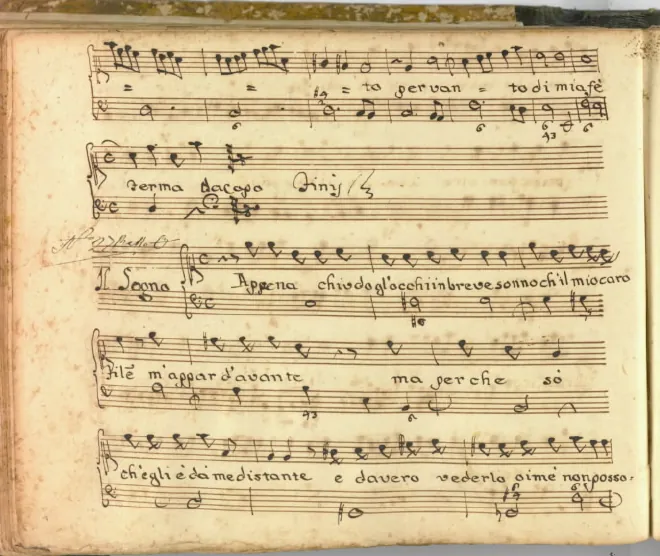 = = = to per van = to di mia fè
ferma da capo Finis
Il Sogno Appena chiudo gl'occhi in breve sonno ch'il mio caro
Filè m'appar d'avante ma perche sò
ch'egli è dà me distante e da vero vederlo oimè non posso.